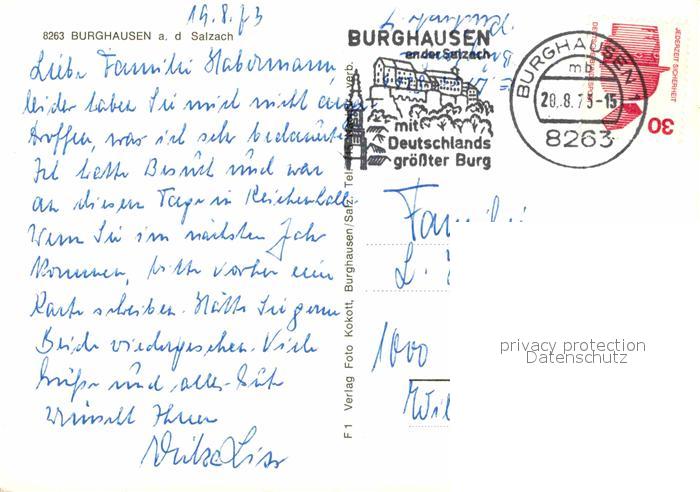 19.8.73
8263 BURGHAUSEN a. d Salzach
Liebe Familie Habermann
leider haben Sie mich nicht
troffen, was ich sehr bedauerte
Ich hatte Besuch und war
an diesem Tage in Reichenhall.
Wenn Sie im nächsten Jahr
kommen, bitte vorher eine
Karte schreiben. Hätte Sie gerne
Beide wiedergesehen. Viele
Grüße und alles Gute
wünscht Ihnen
F 1 Verlag Foto Kokott, Burghausen/Salz. Tel. verb.
BURGHAUSEN
an der Salzach
mit
Deutschlands
größter Burg
BURGHAUSEN 1
mb
20.8.73-15
8263
DEUTSCHE BUNDESPOST
JEDERZEIT SICHERHEIT
30
Fam
1000
privacy protection
Datenschutz